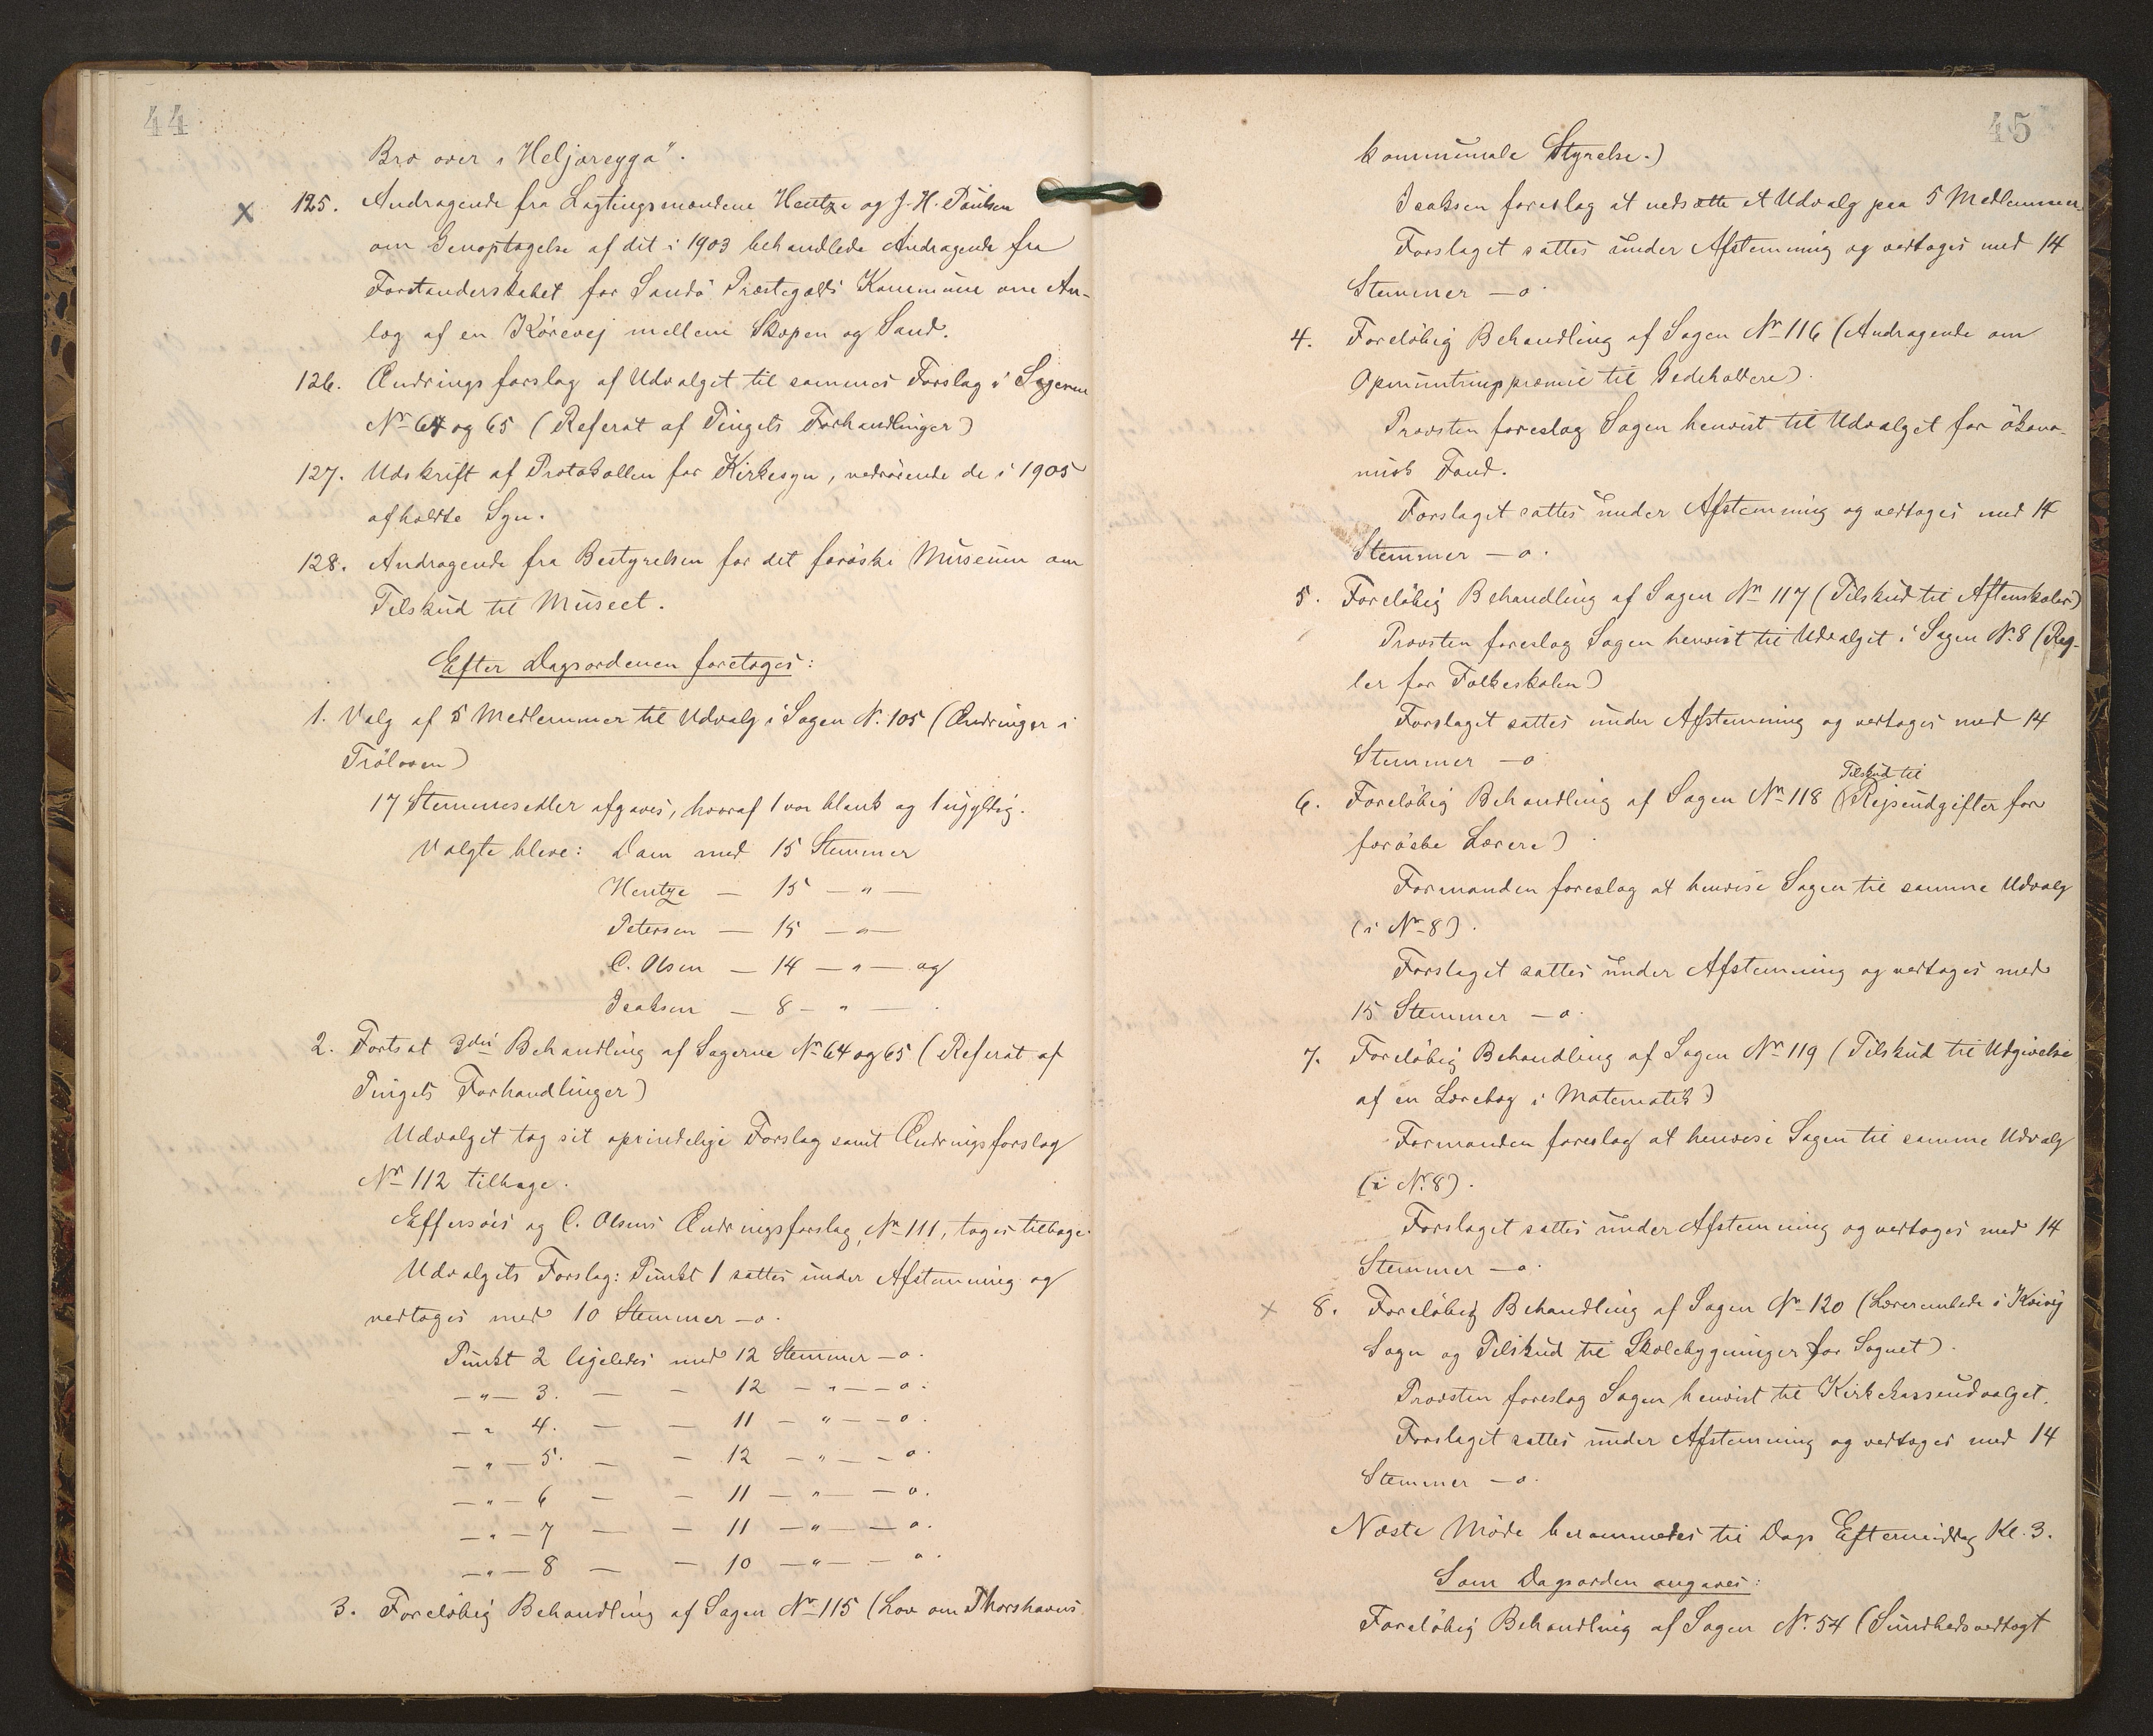 44
Bro over i "Heljareygga".
x 125. Andragende fra Lagtingsmændene Hentze og J. H. Poulsen
om Genoptagelse af det i 1903 behandlede Andragende fra
Forstanderskabet for Sandø Præstegælds Kommune om An-
læg af en Kørevej mellem Skopen og Sand.
126. Ændringsforslag af Udvalget til sammes Forslag i Sagerne
Nr 64 og 65 (Referat af Tingets Forhandlinger)
127. Udskrift af Protokollen for Kirkesyn, vedrørende de i 1905
afholdte Syn.
128. Andragende fra Bestyrelsen for det færøske Museum om
Tilskud til Museet.
Efter Dagsordenen foretoges:
1. Valg af 5 Medlemmer til Udvalg i Sagen N. 105 (Ændringer i
Trøloven)
17 Stemmesedler afgaves, hvoraf 1 var blank og 1 ugyldig.
Valgte bleve: Dam med 15 Stemmer
Hentze — 15 — " —
Petersen — 15 — " —
C. Olsen — 14 — " — og
Isaksen — 8 — " — .
2. Fortsat 3die Behandling af Sagerne Nr 64 og 65 (Referat af
Tingets Forhandlinger)
Udvalget tog sit oprindelige Forslag samt Ændringsforslag
Nr 112 tilbage.
Effersøes og C. Olsens Ændringsforslag, Nr 111, toges tilbage.
Udvalgets Forslag: Punkt 1 sattes under Afstemning og
vedtoges med 10 Stemmer — o.
Punkt 2 ligeledes med 12 Stemmer — o.
— " — 3. — — 12 — " — — o.
— " 4. — — 11 — " — — o.
— " — 5. — — 12 — " — — o.
— " — 6 — — 11 — " — — o.
— " — 7 — — 11 — " — — o.
— " — 8 — — 10 — " — — o.
3. Foreløbig Behandling af Sagen Nr 115 (Lov om Thorshavns
45
kommunale Styrelse.)
Isaksen foreslog at nedsætte et Udvalg paa 5 Medlemmer.
Forslaget sattes under Afstemning og vedtoges med 14
Stemmer — o.
4. Foreløbig Behandling af Sagen Nr 116 (Andragende om
Opmuntringspræmie til Gedeholdere).
Provsten foreslog Sagen henvist til Udvalget for økono-
misk Fond.
Forslaget sattes under Afstemning og vedtoges med 14
Stemmer — o.
5. Foreløbig Behandling af Sagen Nr 117 (Tilskud til Aftenskoler)
Provsten foreslog Sagen henvist til Udvalget i Sagen N. 8 (Reg-
ler for Folkeskolen)
Forslaget sattes under Afstemning og vedtoges med 14
Stemmer — o
Tilskud til
6. Foreløbig Behandling af Sagen Nr 118 (Rejseudgifter for
færøske Lærere)
Formanden foreslog at henvise Sagen til samme Udvalg
(i Nr 8).
Forslaget sattes under Afstemning og vedtoges med
15 Stemmer — o.
7. Foreløbig Behandling af Sagen Nr 119 (Tilskud til Udgivelse
af en Lærebog i Matematik)
Formanden foreslog at henvise Sagen til samme Udvalg
(i N. 8).
Forslaget sattes under Afstemning og vedtoges med 14
Stemmer — o.
x 8. Foreløbig Behandling af Sagen Nr 120 (Lærerembede i Kvivig
Sogn og Tilskud til Skolebygninger for Sognet).
Provsten foreslog Sagen henvist til Kirkekasseudvalget.
Forslaget sattes under Afstemning og vedtoges med 14
Stemmer — o.
Næste Møde berammedes til Dags Eftermiddag Kl. 3.
Som Dagsorden angaves:
Foreløbig Behandling af Sagen Nr. 54 (Sundhedsvedtægt